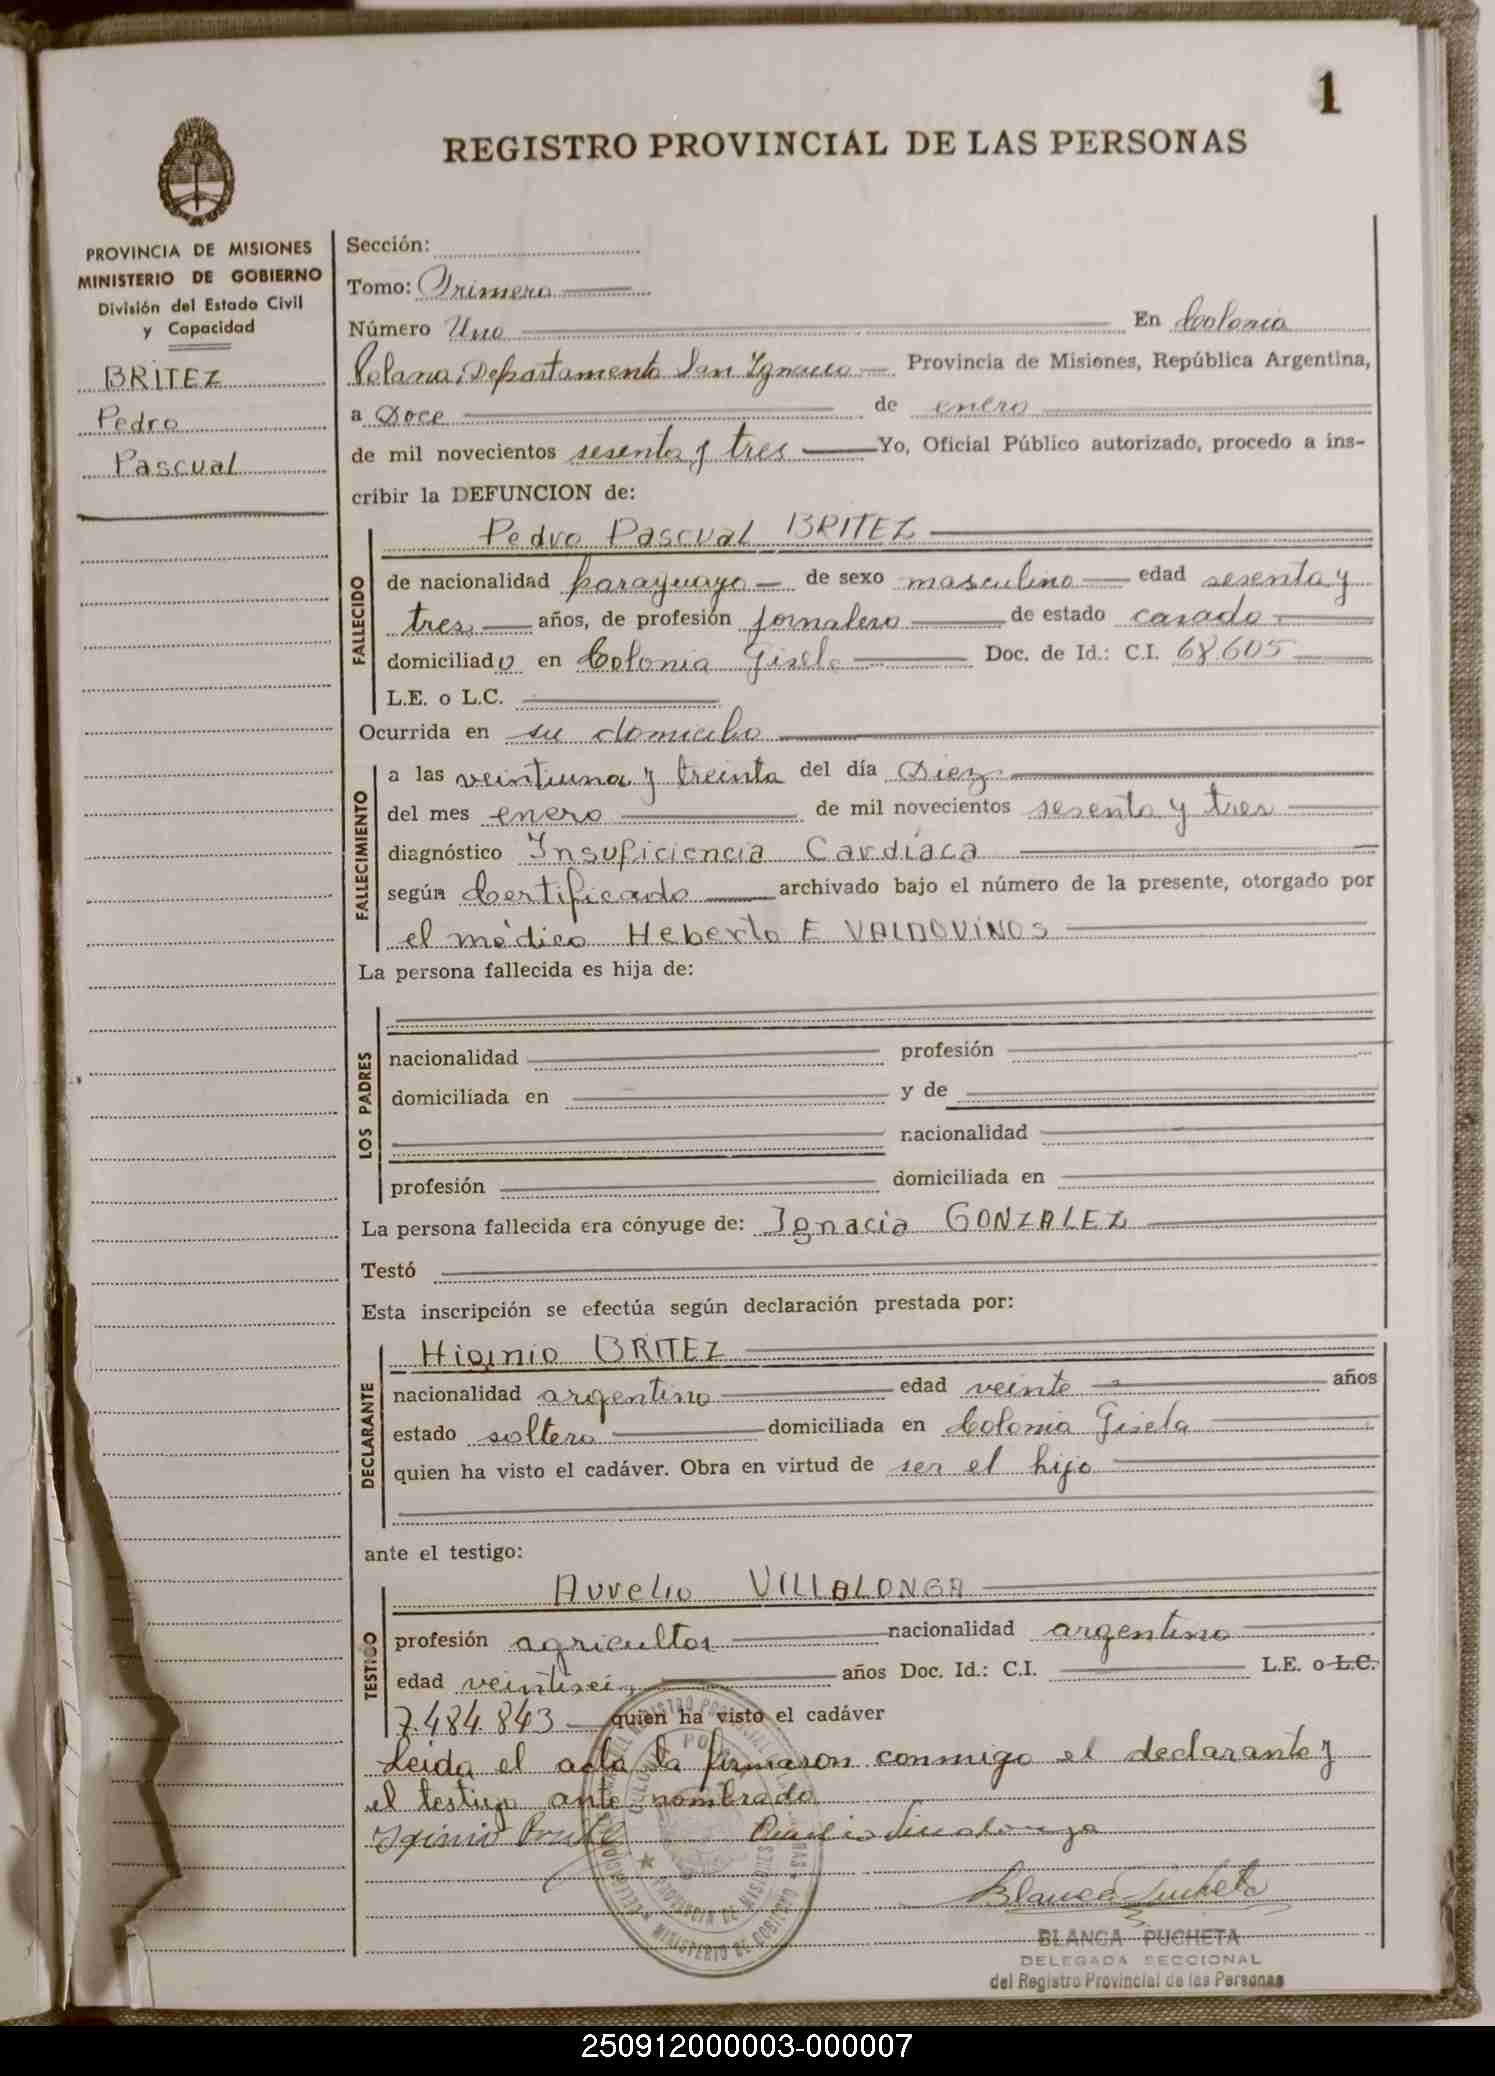 1
REGISTRO PROVINCIAL DE LAS PERSONAS
PROVINCIA DE MISIONES
MINISTERIO DE GOBIERNO
División del Estado Civil
y Capacidad
BRITEZ
Pedro
Pascual
Sección:
Tomo: Primero
Número Uno En Colonia
Polana, Departamento San Ignacio Provincia de Misiones, República Argentina,
a Doce de enero
de mil novecientos sesenta y tres Yo, Oficial Público autorizado, procedo a ins-
cribir la DEFUNCION de:
Pedro Pascual BRITEZ
FALLECIDO
de nacionalidad paraguayo de sexo masculino edad sesenta y
tres años, de profesión jornalero de estado casado
domiciliado en Colonia Gisela Doc. de Id.: C.I. 68.605
L.E. o L.C.
Ocurrida en su domicilio
FALLECIMIENTO
a las veintiuna y treinta del día Diez
del mes enero de mil novecientos sesenta y tres
diagnóstico Insuficiencia Cardíaca
según Certificado archivado bajo el número de la presente, otorgado por
el médico Heberto E VALDOVINOS
La persona fallecida es hija de:
LOS PADRES
nacionalidad profesión
domiciliada en y de
nacionalidad
profesión domiciliada en
La persona fallecida era cónyuge de: Ignacia GONZALEZ
Testó
Esta inscripción se efectúa según declaración prestada por:
DECLARANTE
Higinio BRITEZ
nacionalidad argentino edad veinte años
estado soltero domiciliada en Colonia Gisela
quien ha visto el cadáver. Obra en virtud de ser el hijo
ante el testigo:
TESTIGO
Aurelio VILLALONGA
profesión agricultor nacionalidad argentino
edad veintiseis años Doc. Id.: C.I. L.E. o L.C.
7.484.843 quien ha visto el cadáver
Leida el acta la firmaron conmigo el declarante y
el testigo ante nombrado
Iginio Britez Aurelio Villalonga
Blanca Pucheta
BLANCA PUCHETA
DELEGADA SECCIONAL
del Registro Provincial de las Personas
PROVINCIA DE MISIONES
MINISTERIO DE GOBIERNO
250912000003-000007